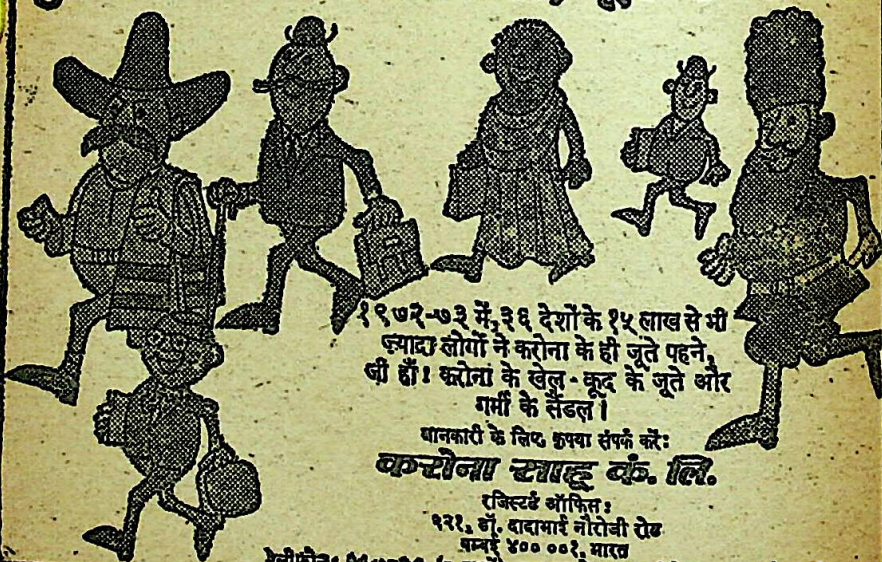 १९७२-७३ में, ३६ देशों के १५ लाख से भी
ज़्यादा लोगों ने करोना के ही जूते पहने,
जी हाँ! करोना के खेल-कूद के जूते और
गर्मी के सैंडल।
जानकारी के लिए कृपया संपर्क करें:
करोना साहू कं. लि.
रजिस्टर्ड ऑफिस:
२२१, डॉ. दादाभाई नौरोजी रोड
बम्बई ४०० ००१, भारत
टेलीफोन: